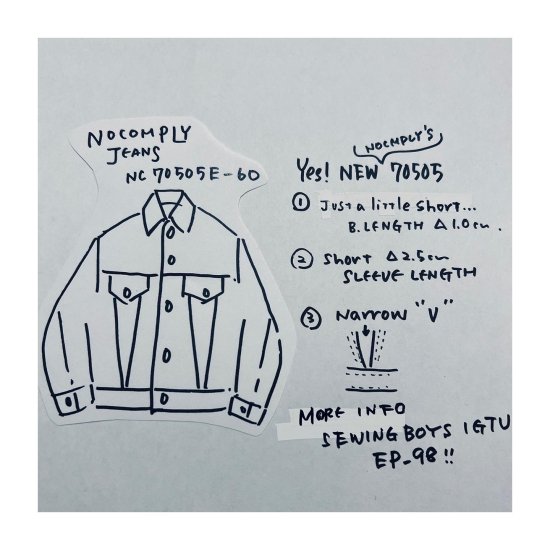 NOCOMPLY
JEANS
NC 70505E-60
NOCMPLY'S
Yes! NEW 70505
① Just a little short...
B.LENGTH △1.0cm.
② Short △2.5cm
SLEEVE LENGTH
③ Narrow "V"
MORE INFO
SEWINGBOYS IGTV
EP-98!!